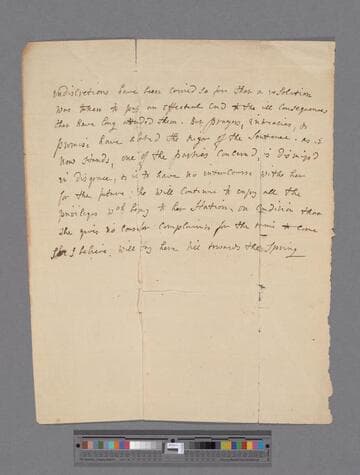 indiscretions have been carried so far that a resolution
was taken to put an effectual end to the ill consequences
that have long attended them. But prayers, intreaties, &
promises have abated the rigor of the Sentence. as it
now stands, one of the parties concerned, is dismissed
in disgrace, & is to have no intercourse with her
for the future. She will continue to enjoy all the
privileges wch belong to her Station, on condition that
she gives no cause for complaint for the time to come
She I believe, will stay here till towards the Spring